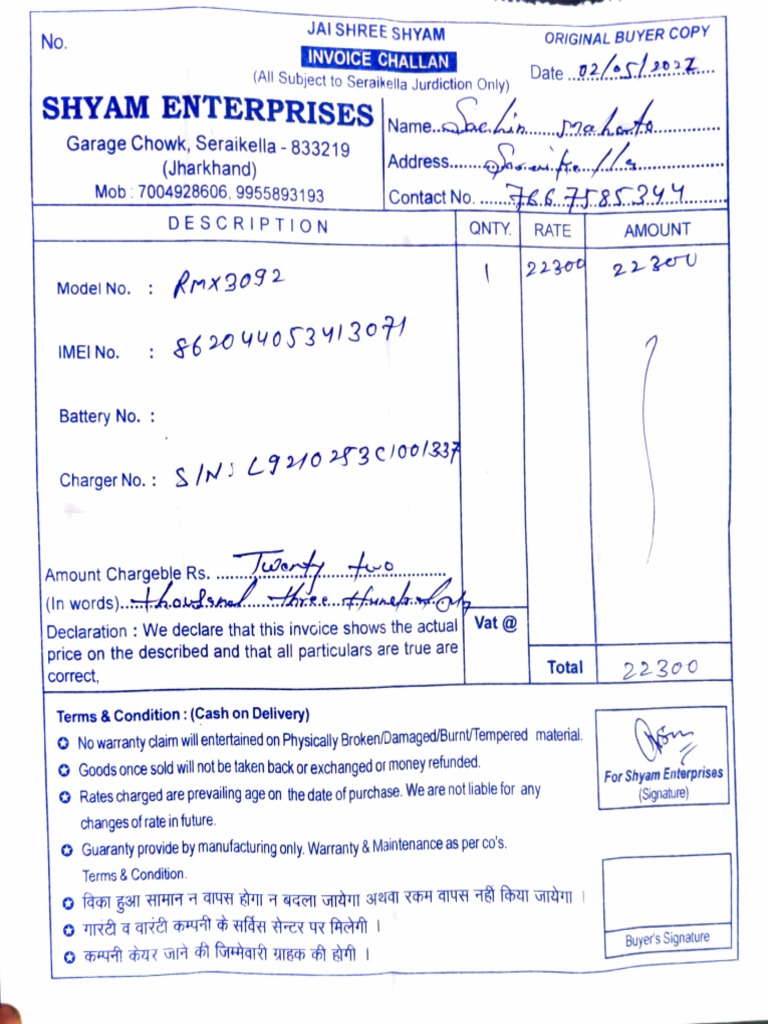 No.
JAI SHREE SHYAM
INVOICE CHALLAN
(All Subject to Seraikella Jurdiction Only)
ORIGINAL BUYER COPY
Date 02/05/2022
SHYAM ENTERPRISES
Garage Chowk, Seraikella - 833219
(Jharkhand)
Mob : 7004928606, 9955893193
Name Sachin Mahato
Address Seraikella
Contact No. 7667585344
DESCRIPTION QNTY. RATE AMOUNT
Model No. : RMX3092 1 22300 22300
IMEI No. : 862044053413071
Battery No. :
Charger No. : S/N: L9210253C1001337
Amount Chargeable Rs. Twenty two
(In words) thousand three Hundred only
Declaration : We declare that this invoice shows the actual
price on the described and that all particulars are true are
correct,
Vat @
Total 22300
Terms & Condition : (Cash on Delivery)
No warranty claim will entertained on Physically Broken/Damaged/Burnt/Tempered material.
Goods once sold will not be taken back or exchanged or money refunded.
Rates charged are prevailing age on the date of purchase. We are not liable for any
changes of rate in future.
Guaranty provide by manufacturing only. Warranty & Maintenance as per co's.
Terms & Condition.
विका हुआ सामान न वापस होगा न बदला जायेगा अथवा रकम वापस नहीं किया जायेगा ।
गारंटी व वारंटी कम्पनी के सर्विस सेन्टर पर मिलेगी ।
कम्पनी केयर जाने की जिम्मेवारी ग्राहक की होगी ।
For Shyam Enterprises
(Signature)
Buyer's Signature